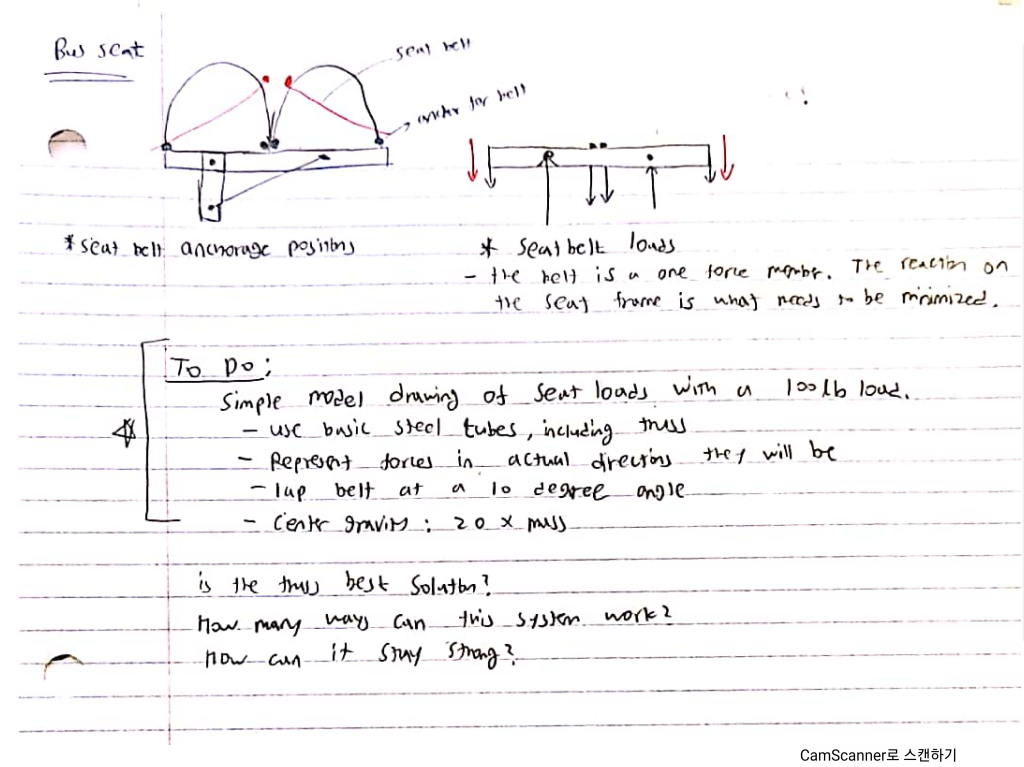 Bus seat
seat belt
anchor for belt
* seat belt anchorage positions
* seat belt loads
- the belt is a one force member. The reaction on
the seat frame is what needs to be minimized.
To Do:
Simple model drawing of seat loads with a 100lb load.
- use basic steel tubes, including truss
- Represent forces in actual directions they will be
- lap belt at a 10 degree angle
- Center gravity: 20 x mass
is the truss best solution?
How many ways can this system work?
How can it stay strong?
CamScanner로 스캔하기